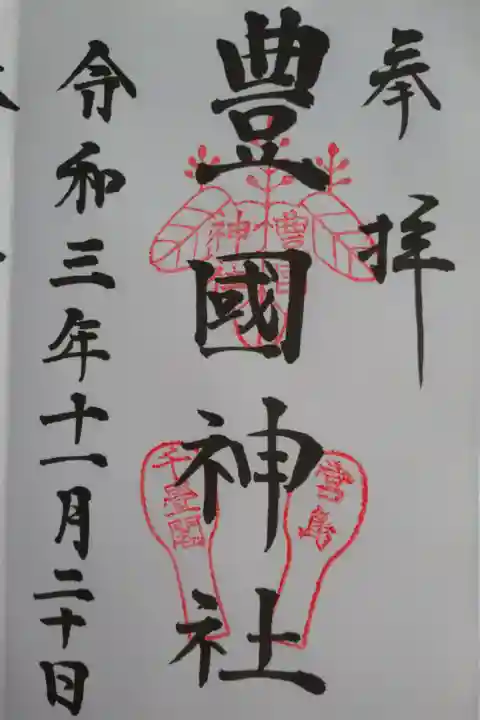 奉拝
豊國神社
宮島
千畳閣
令和三年十一月二十日